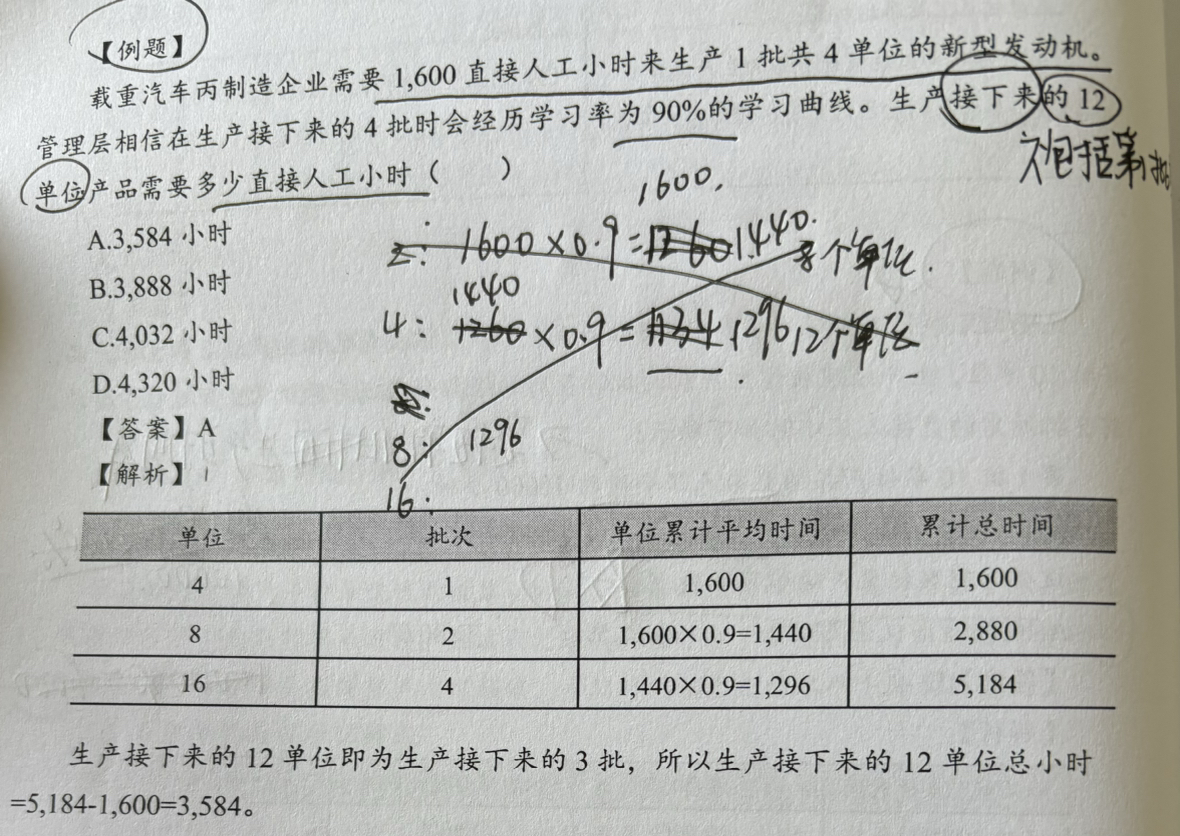 【例题】
载重汽车丙制造企业需要 1,600 直接人工小时来生产 1 批共 4 单位的新型发动机。
管理层相信在生产接下来的 4 批时会经历学习率为 90%的学习曲线。生产接下来的 12
单位产品需要多少直接人工小时（　　）
不包括第1批
1600.
A.3,584 小时
2: 1600×0.9=1260 1440. 8个单位.
B.3,888 小时
1440
C.4,032 小时
4: 1260×0.9=1134 1296 12个单位
D.4,320 小时
【答案】A
8: 1296
【解析】
16:
单位 批次 单位累计平均时间 累计总时间
4 1 1,600 1,600
8 2 1,600×0.9=1,440 2,880
16 4 1,440×0.9=1,296 5,184
生产接下来的 12 单位即为生产接下来的 3 批，所以生产接下来的 12 单位总小时
=5,184-1,600=3,584。